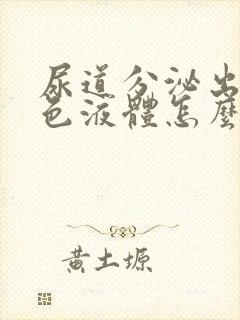 尿道分泌出
色液體怎麼
黃土塬